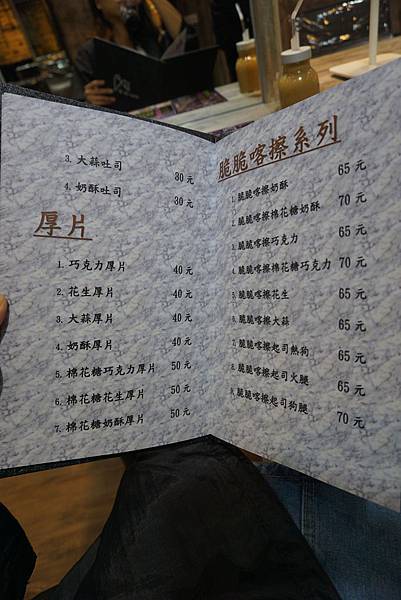 3. 大蒜吐司 30元
4. 奶酥吐司 30元
厚片
1. 巧克力厚片 40元
2. 花生厚片 40元
3. 大蒜厚片 40元
4. 奶酥厚片 40元
5. 棉花糖巧克力厚片 50元
6. 棉花糖花生厚片 50元
7. 棉花糖奶酥厚片 50元
脆脆喀擦系列
1. 脆脆喀擦奶酥 65元
2. 脆脆喀擦棉花糖奶酥 70元
3. 脆脆喀擦巧克力 65元
4. 脆脆喀擦棉花糖巧克力 70元
5. 脆脆喀擦花生 65元
6. 脆脆喀擦大蒜 65元
7. 脆脆喀擦起司熱狗 65元
8. 脆脆喀擦起司火腿 65元
9. 脆脆喀擦起司狗腿 70元